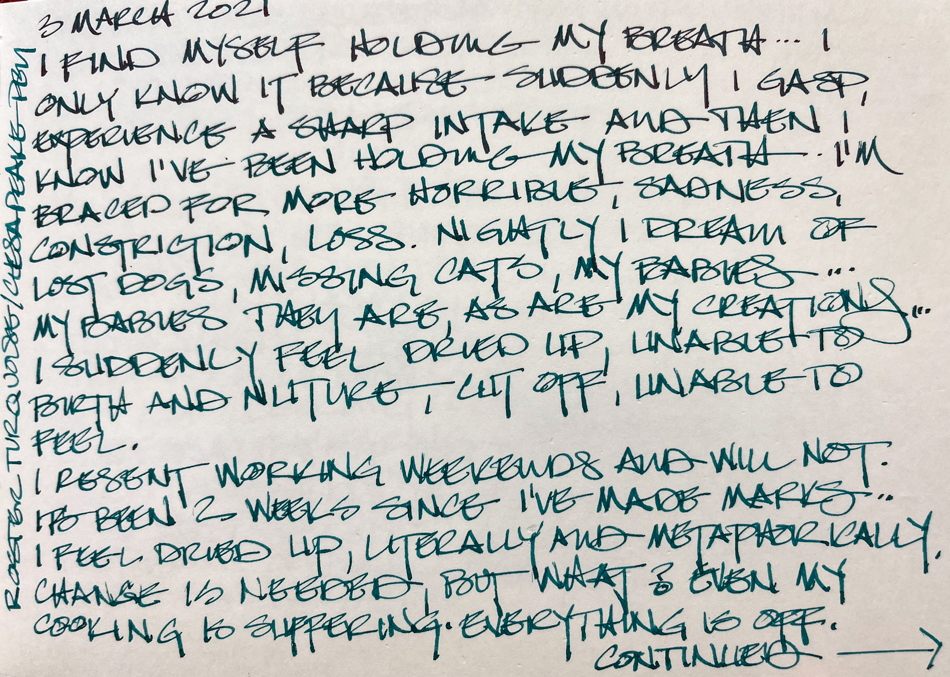 3 MARCH 2021
I FIND MYSELF HOLDING MY BREATH... I
ONLY KNOW IT BECAUSE SUDDENLY I GASP,
EXPERIENCE A SHARP INTAKE AND THEN I
KNOW I'VE BEEN HOLDING MY BREATH.. I'M
BRACED FOR MORE HORRIBLE, SADNESS,
CONSTRICTION, LOSS. NIGHTLY I DREAM OF
LOST DOGS, MISSING CATS, MY BABIES...
MY BABIES THEY ARE, AS ARE MY CREATIONS...
I SUDDENLY FEEL DRIED UP, UNABLE TO
BIRTH AND NUTURE, CUT OFF, UNABLE TO
FEEL.
I RESENT WORKING WEEKENDS AND WILL NOT.
IT'S BEEN 2 WEEKS SINCE I'VE MADE MARKS...
I FEEL DRIED UP, LITERALLY AND METAPHORICALLY.
CHANGE IS NEEDED, BUT WHAT? EVEN MY
COOKING IS SUFFERING. EVERYTHING IS OFF.
CONTINUED →
ROSTER TURQUOISE/CHESAPEAKE PEN